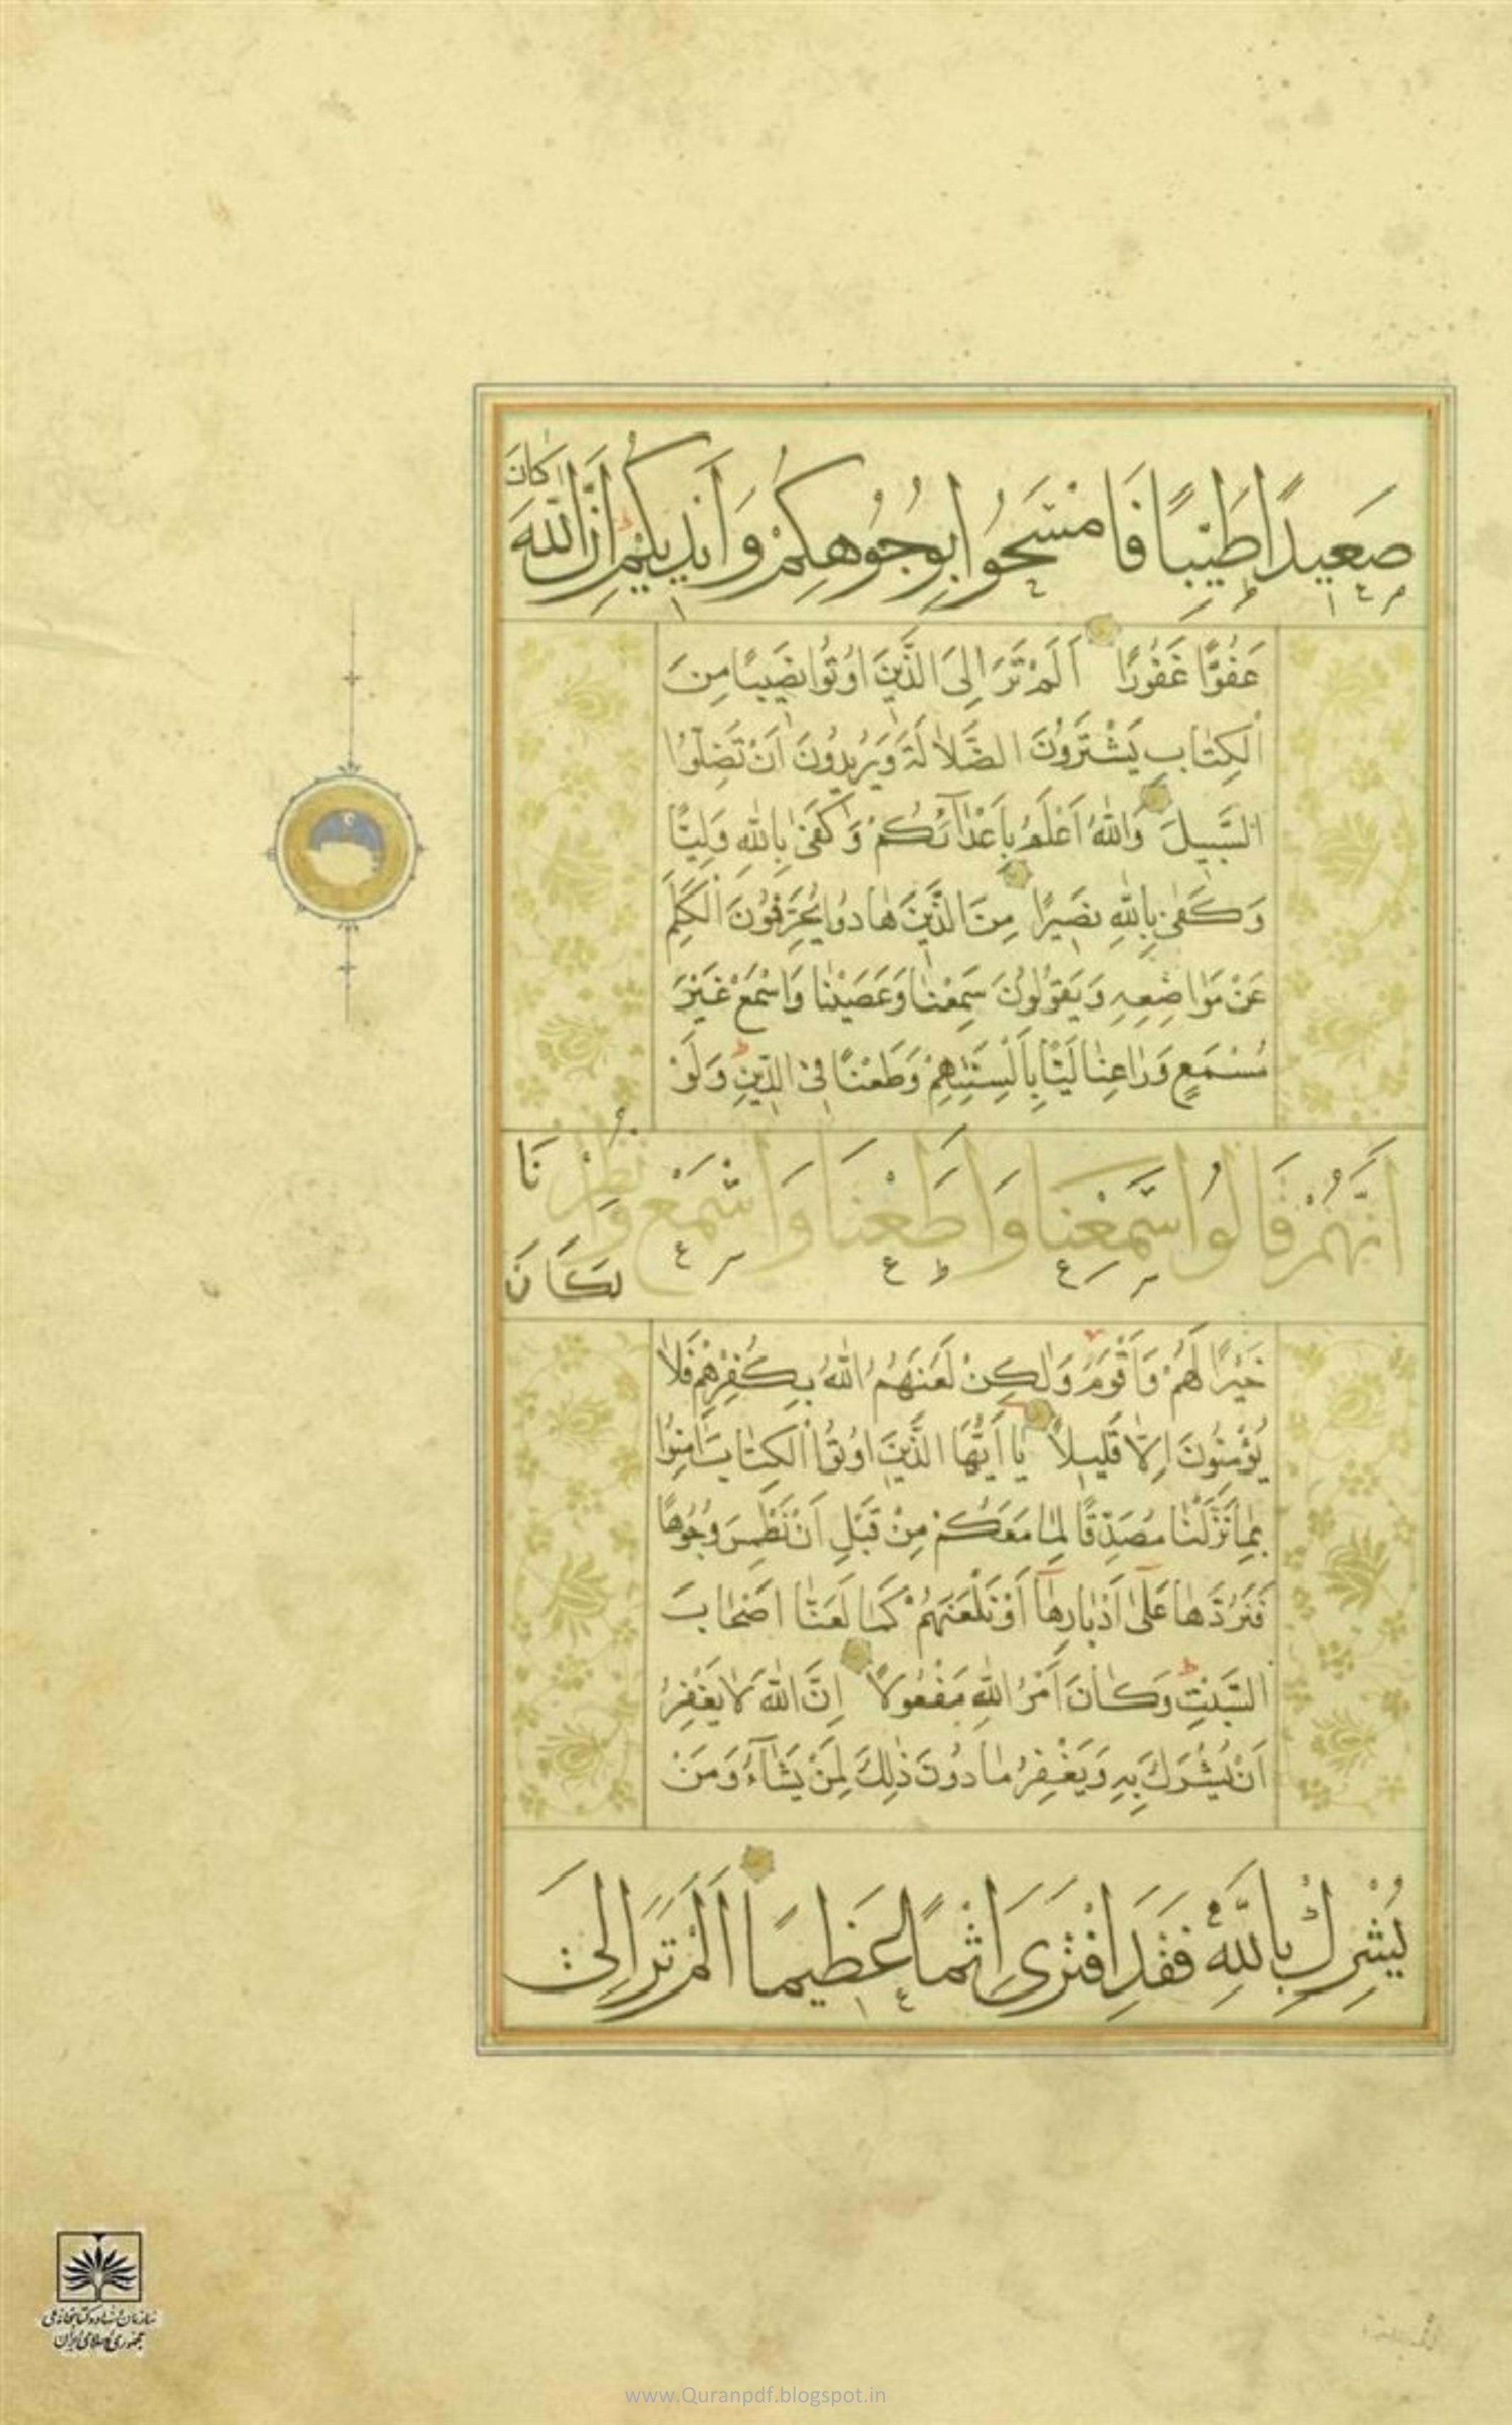 صَعِيدًا طَيِّبًا فَامْسَحُوا بِوُجُوهِكُمْ وَأَيْدِيكُمْ إِنَّ اللّٰهَ كَانَ
عَفُوًّا غَفُورًا أَلَمْ تَرَ إِلَى الَّذِينَ اُوتُوا نَصِيبًا مِنَ
الْكِتَابِ يَشْتَرُونَ الضَّلَالَةَ وَيُرِيدُونَ أَنْ تَضِلُّوا
السَّبِيلَ وَاللّٰهُ أَعْلَمُ بِأَعْدَآئِكُمْ وَكَفَىٰ بِاللّٰهِ وَلِيًّا
وَكَفَىٰ بِاللّٰهِ نَصِيرًا مِنَ الَّذِينَ هَادُوا يُحَرِّفُونَ الْكَلِمَ
عَنْ مَوَاضِعِهِ وَيَقُولُونَ سَمِعْنَا وَعَصَيْنَا وَاسْمَعْ غَيْرَ
مُسْمَعٍ وَرَاعِنَا لَيًّا بِأَلْسِنَتِهِمْ وَطَعْنًا فِي الدِّينِ وَلَوْ
أَنَّهُمْ قَالُوا سَمِعْنَا وَأَطَعْنَا وَاسْمَعْ وَانْظُرْنَا لَكَانَ
خَيْرًا لَهُمْ وَأَقْوَمَ وَلٰكِنْ لَعَنَهُمُ اللّٰهُ بِكُفْرِهِمْ فَلَا
يُؤْمِنُونَ إِلَّا قَلِيلًا يَا أَيُّهَا الَّذِينَ اُوتُوا الْكِتَابَ اٰمِنُوا
بِمَا نَزَّلْنَا مُصَدِّقًا لِمَا مَعَكُمْ مِنْ قَبْلِ أَنْ نَطْمِسَ وُجُوهًا
فَنَرُدَّهَا عَلَىٰ أَدْبَارِهَآ أَوْ نَلْعَنَهُمْ كَمَا لَعَنَّا أَصْحَابَ
السَّبْتِ وَكَانَ أَمْرُ اللّٰهِ مَفْعُولًا إِنَّ اللّٰهَ لَا يَغْفِرُ
أَنْ يُشْرَكَ بِهِ وَيَغْفِرُ مَا دُونَ ذٰلِكَ لِمَنْ يَشَآءُ وَمَنْ
يُشْرِكْ بِاللّٰهِ فَقَدِ افْتَرَىٰ إِثْمًا عَظِيمًا أَلَمْ تَرَ إِلَى
سازمان اسناد و کتابخانه ملی
جمهوری اسلامی ایران
www.Quranpdf.blogspot.in